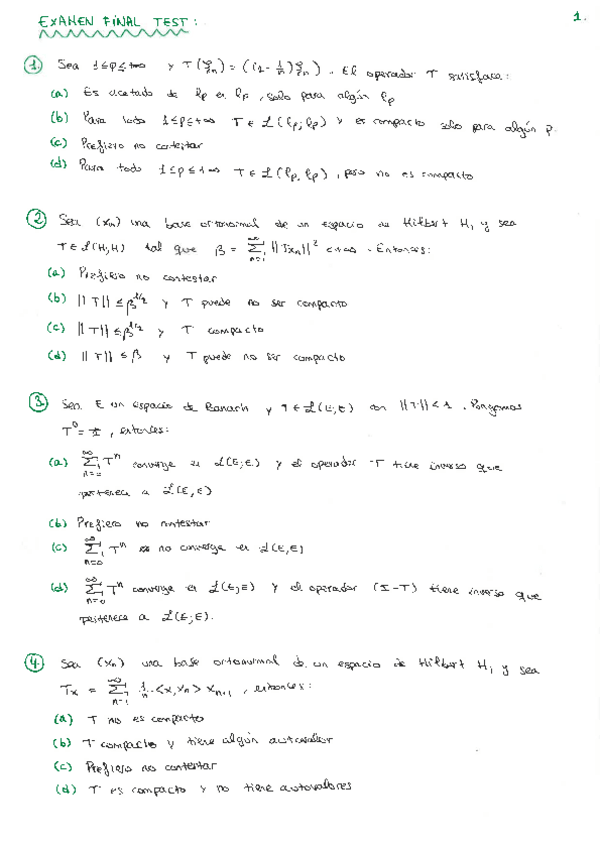 EXAMEN FINAL TEST:
1.
1. Sea 1≤p≤+∞ y T(ξn) = ((1-1/n)ξn). El operador T satisface:
(a) Es acotado de lp en lp, solo para algún lp
(b) Para todo 1≤p≤+∞ T∈L(lp;lp) y es compacto solo para algún p.
(c) Prefiero no contestar
(d) Para todo 1≤p≤+∞ T∈L(lp,lp), pero no es compacto
2. Sea (xn) una base ortonormal de un espacio de Hilbert H, y sea
T∈L(H,H) tal que β = ∑_{n=1}^{∞} ||Txn||² <+∞. Entonces:
(a) Prefiero no contestar
(b) ||T|| ≤ β^{1/2} y T puede no ser compacto
(c) ||T|| ≤ β^{1/2} y T compacto
(d) ||T|| ≤ β y T puede no ser compacto
3. Sea E un espacio de Banach y T∈L(E;E) con ||T||<1. Pongamos
T⁰=I, entonces:
(a) ∑_{n=0}^{∞} Tⁿ converge en L(E;E) y el operador -T tiene inverso que
pertenece a L(E,E)
(b) Prefiero no contestar
(c) ∑_{n=0}^{∞} Tⁿ no converge en L(E,E)
(d) ∑_{n=0}^{∞} Tⁿ converge en L(E;E) y el operador (I-T) tiene inverso que
pertenece a L(E;E).
4. Sea (xn) una base ortonormal de un espacio de Hilbert H, y sea
Tx = ∑_{n=1}^{∞} 1/n · <x,xn> xn+1, entonces:
(a) T no es compacto
(b) T compacto y tiene algún autovalor
(c) Prefiero no contestar
(d) T es compacto y no tiene autovalores